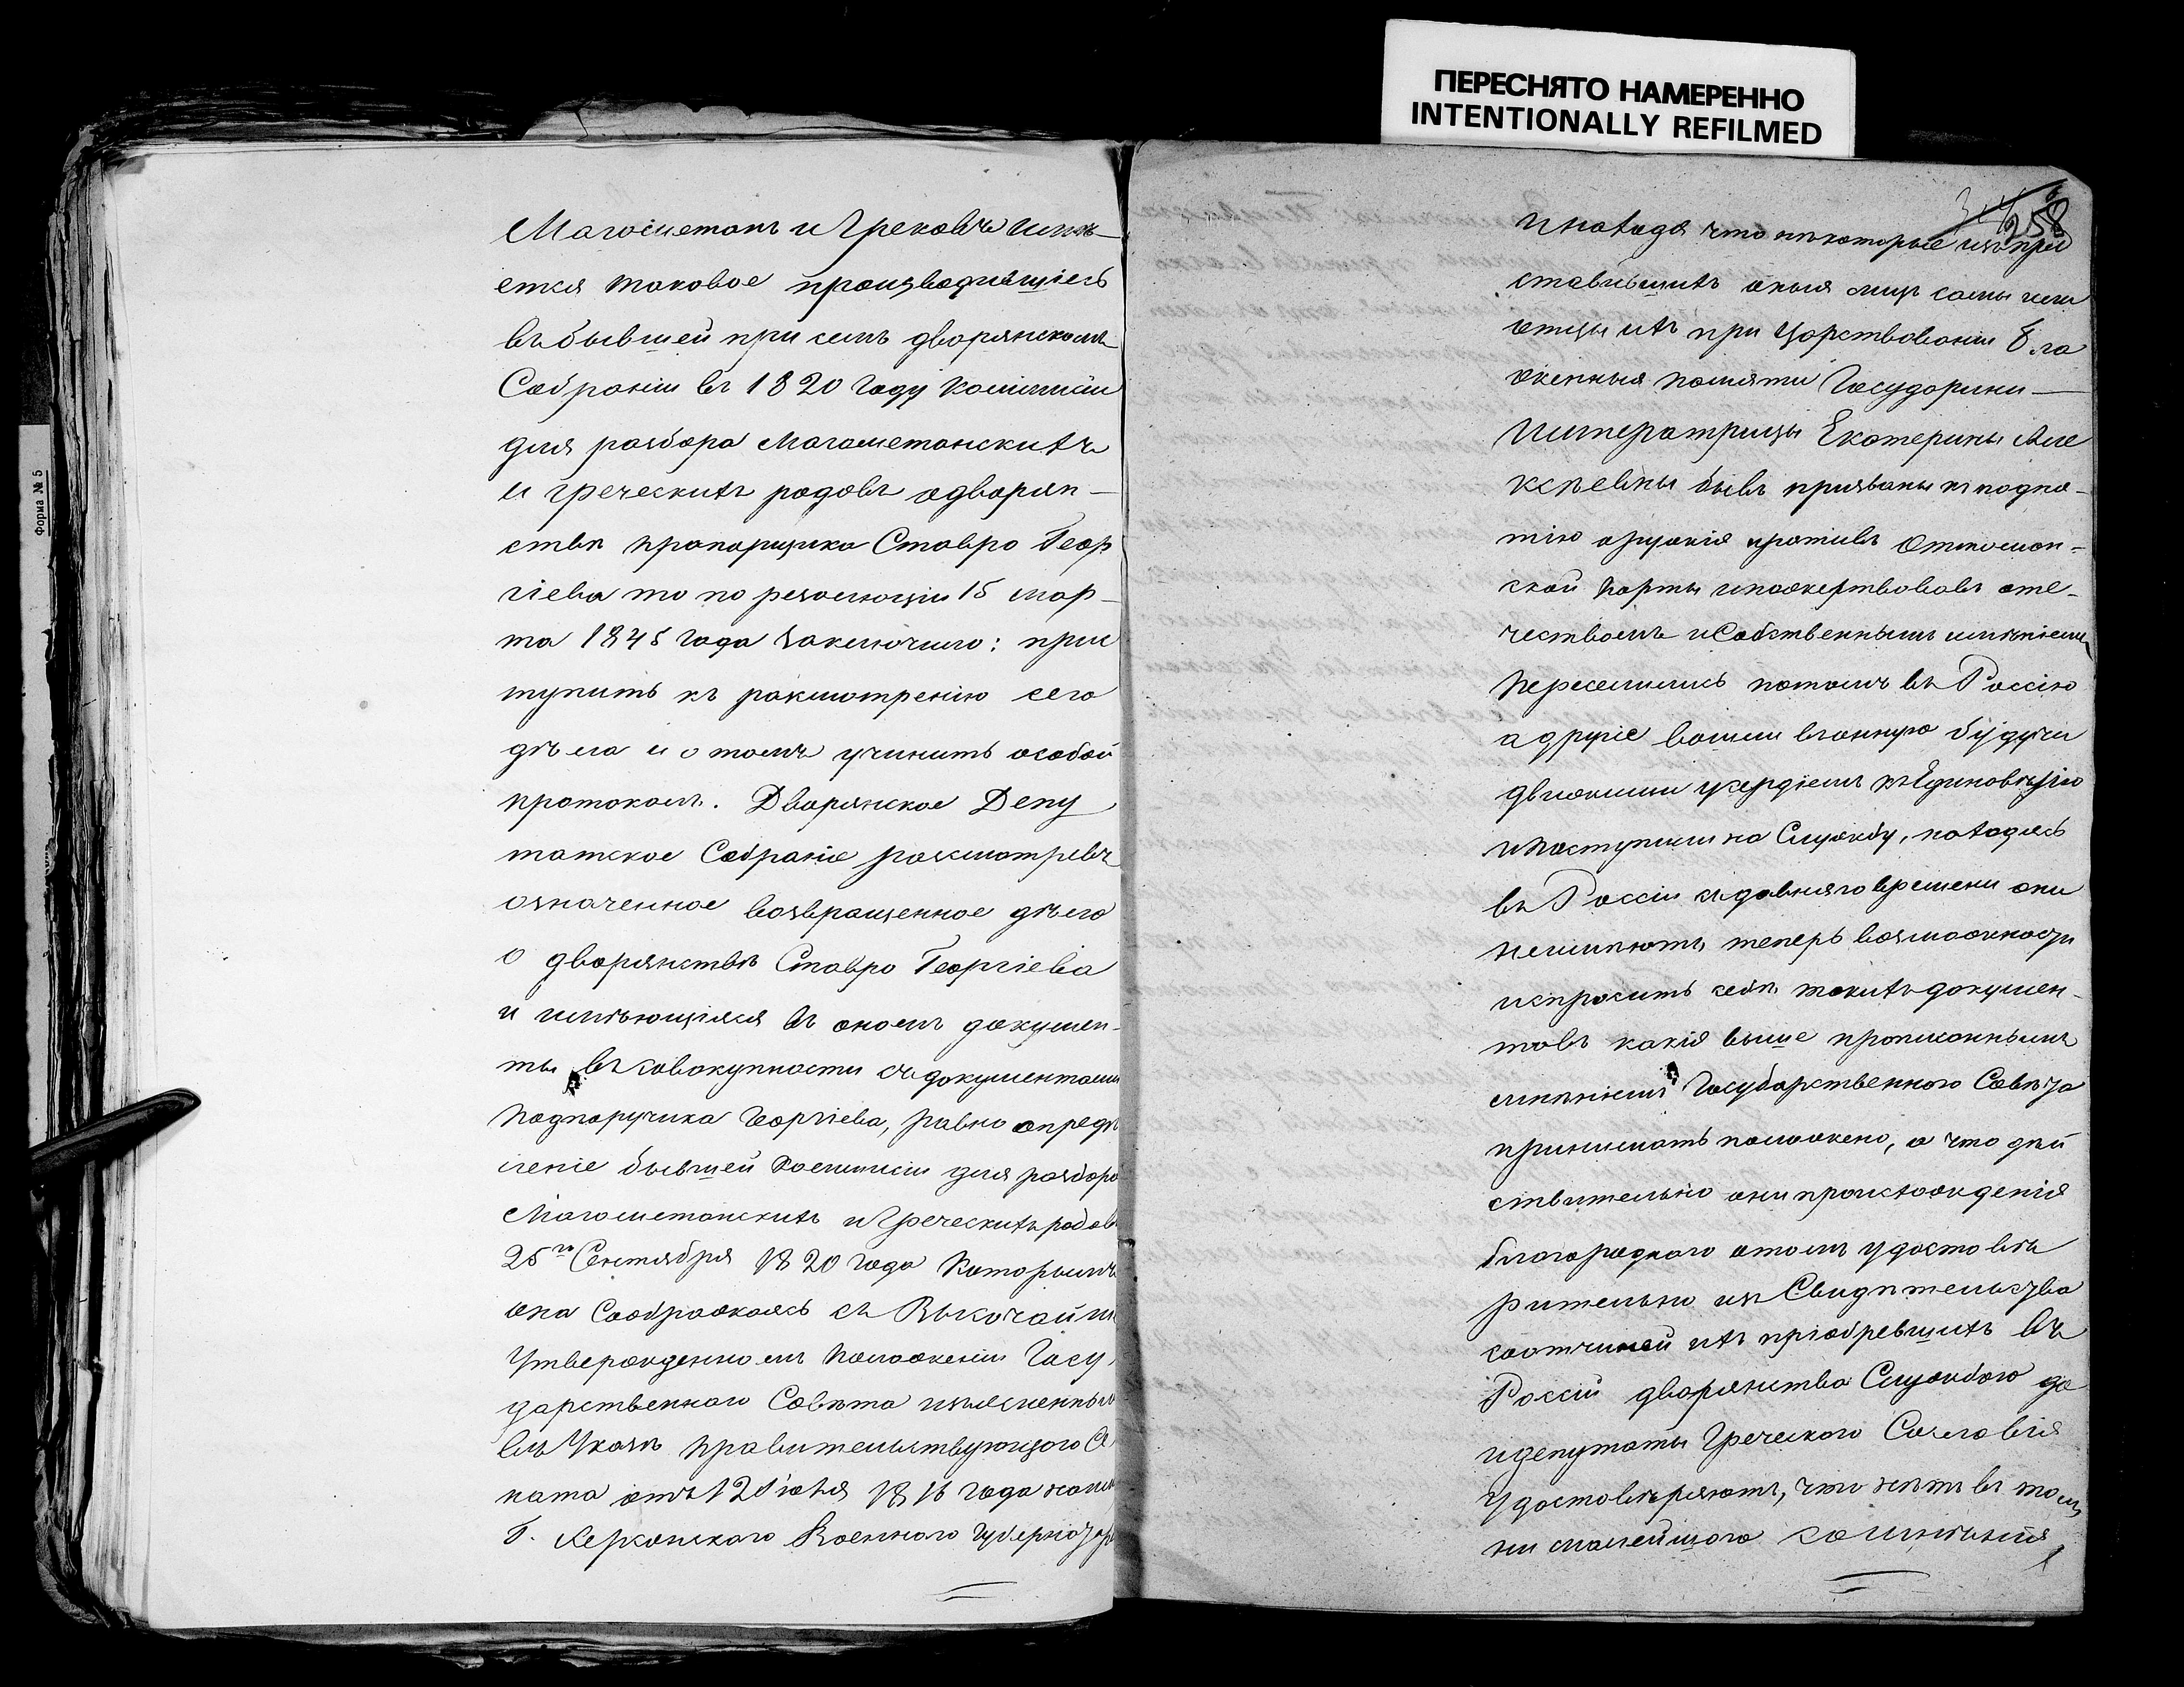 Магометанъ и Грековъ имѣ-
ется таковое производившіесь
въ бывшей при семъ дворянскомъ
Собраніи въ 1820 году Коммиссіи
для разбора Магометанскихъ
и греческихъ родовъ одворян-
ствѣ прапорщика Ставро Геор
гіева то по резолюціи 15 мар-
та 1845 года заключило: прис
тупить къ разсмотренію сего
дѣла и о томъ учинить особой
протоколъ. Дворянское Депу
татское Собраніе разсмотревъ
означенное возвращенное дѣло
о дворянствѣ Ставро Георгіева
и имѣющіяся въ ономъ докумен-
ты въ совокупности съ документами
Подпоручика Георгіева, равно опредѣ
леніе бывшей Коммисіи для разбора
Магометанскихъ и Греческихъ родовъ
25го Сентября 1820 года Которымъ
она Соображаясь съ Высочайше
Утвержденномъ Положеніи Госу,
дарственнаго Совѣта изъясненнымъ
въ Указѣ Правительствующаго Се,
ната отъ 12 Іюня 1816 года на имя
Г. Херсонскаго Военнаго Губернатора
ПЕРЕСНЯТО НАМЕРЕННО
INTENTIONALLY REFILMED
258
Инаходя что нѣкоторые изъ пред
ставившихъ оныя лицъ самы или
отцы ихъ при Царствованіи Бла
женныя памяти Государыни-
Императрицы Екатерины Але
ксѣевны бывъ призваны къ подня-
тію оружія противъ Оттоман-
ской Порты и пожертвовавъ оте-
чествомъ и Собственнымъ имѣніемъ,
Переселились потомъ въ Россію
а другіе вошли въ оную будучи
движими усердіемъ къ Единовѣрію
и Поступили на Службу, находясь
въ Россіи съ давняго времени они
неимѣютъ теперь возможности
испросить себѣ такихъ докумен-
товъ какія выше прописаннымъ
мнѣніемъ Государственнаго Совѣта
принимать положено, а что дѣй
ствительно они происхожденія
благороднаго о томъ удостовѣ
рительны их Свидѣтельства
соотчичей ихъ пріобревшихъ въ
Россіи дворянство Службою да
и депутаты Греческаго Сословія
Удостовѣряютъ, что нѣтъ въ томъ,
ни малейшаго сомнѣнія
Форма № 5